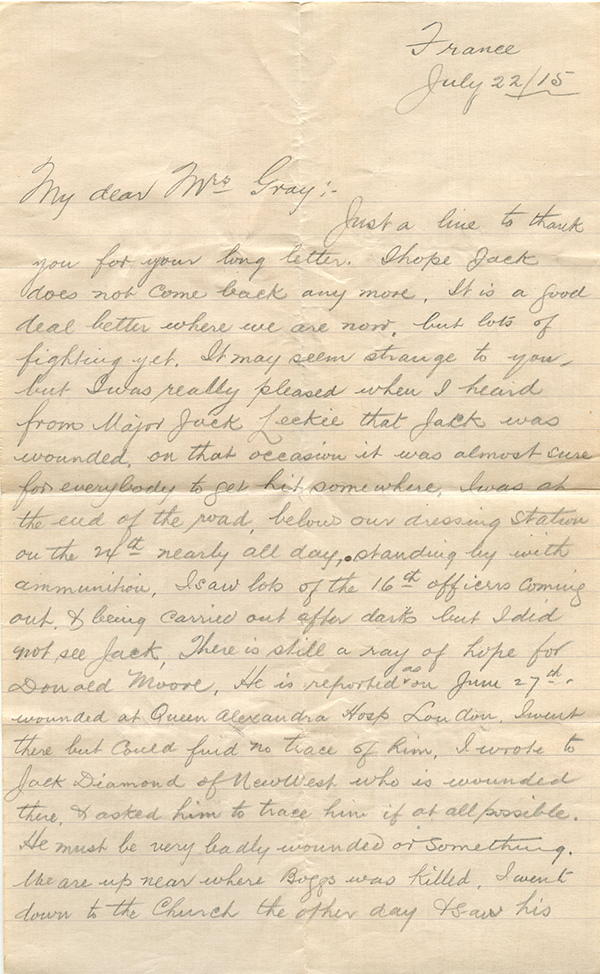 France
July 22/15
My dear Mrs Gray;-
Just a line to thank
you for your long letter. I hope Jack
does not come back any more. It is a good
deal better where we are now, but lots of
fighting yet. It may seem strange to you,
but I was really pleased when I heard
from Major Jack Leckie that Jack was
wounded. on that occasion it was almost sure
for everybody to get hit somewhere. I was at
the end of the road, below our dressing station
on the 24th nearly all day, standing by with
ammunition. I saw lots of the 16th officers coming
out, & being carried out after dark but I did
not see Jack. There is still a ray of hope for
Donald Moore. He is reported as on June 27th.
wounded at Queen Alexandra Hosp London. I went
there but could find no trace of him. I wrote to
Jack Diamond of New West who is wounded
there, & asked him to trace him if at all possible.
He must be very badly wounded or something.
We are up near where Boggs was killed. I went
down to the Church the other day & saw his